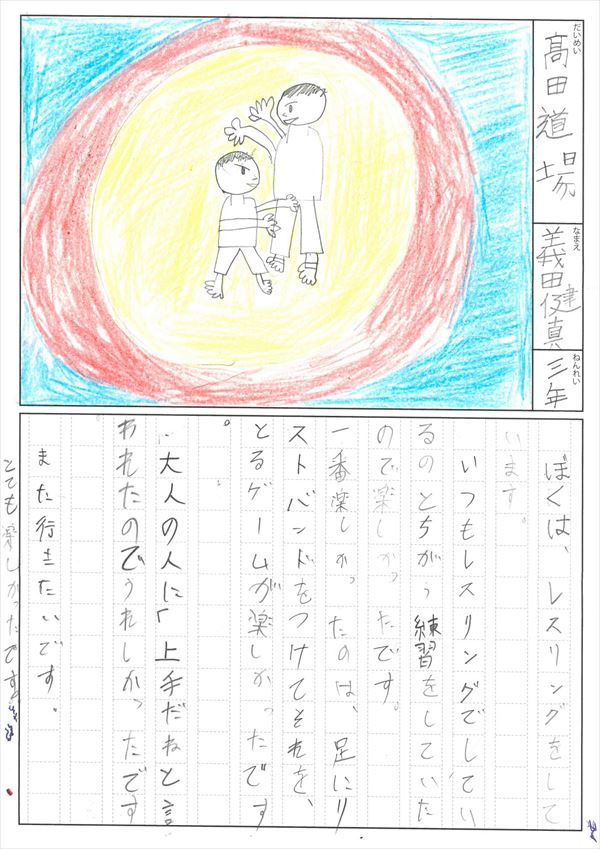 だいめい
髙田道場
なまえ
義田健真
ねんれい
三年
ぼくは、レスリングをして
います。
いつもレスリングでしてい
るのとちがう練習をしていた
ので楽しかったです。
一番楽しかったのは、足にリ
ストバンドをつけてそれを、
とるゲームが楽しかったです
。
大人の人に「上手だねと言
われたのでうれしかったです
また行きたいです。
とても楽しかったです。